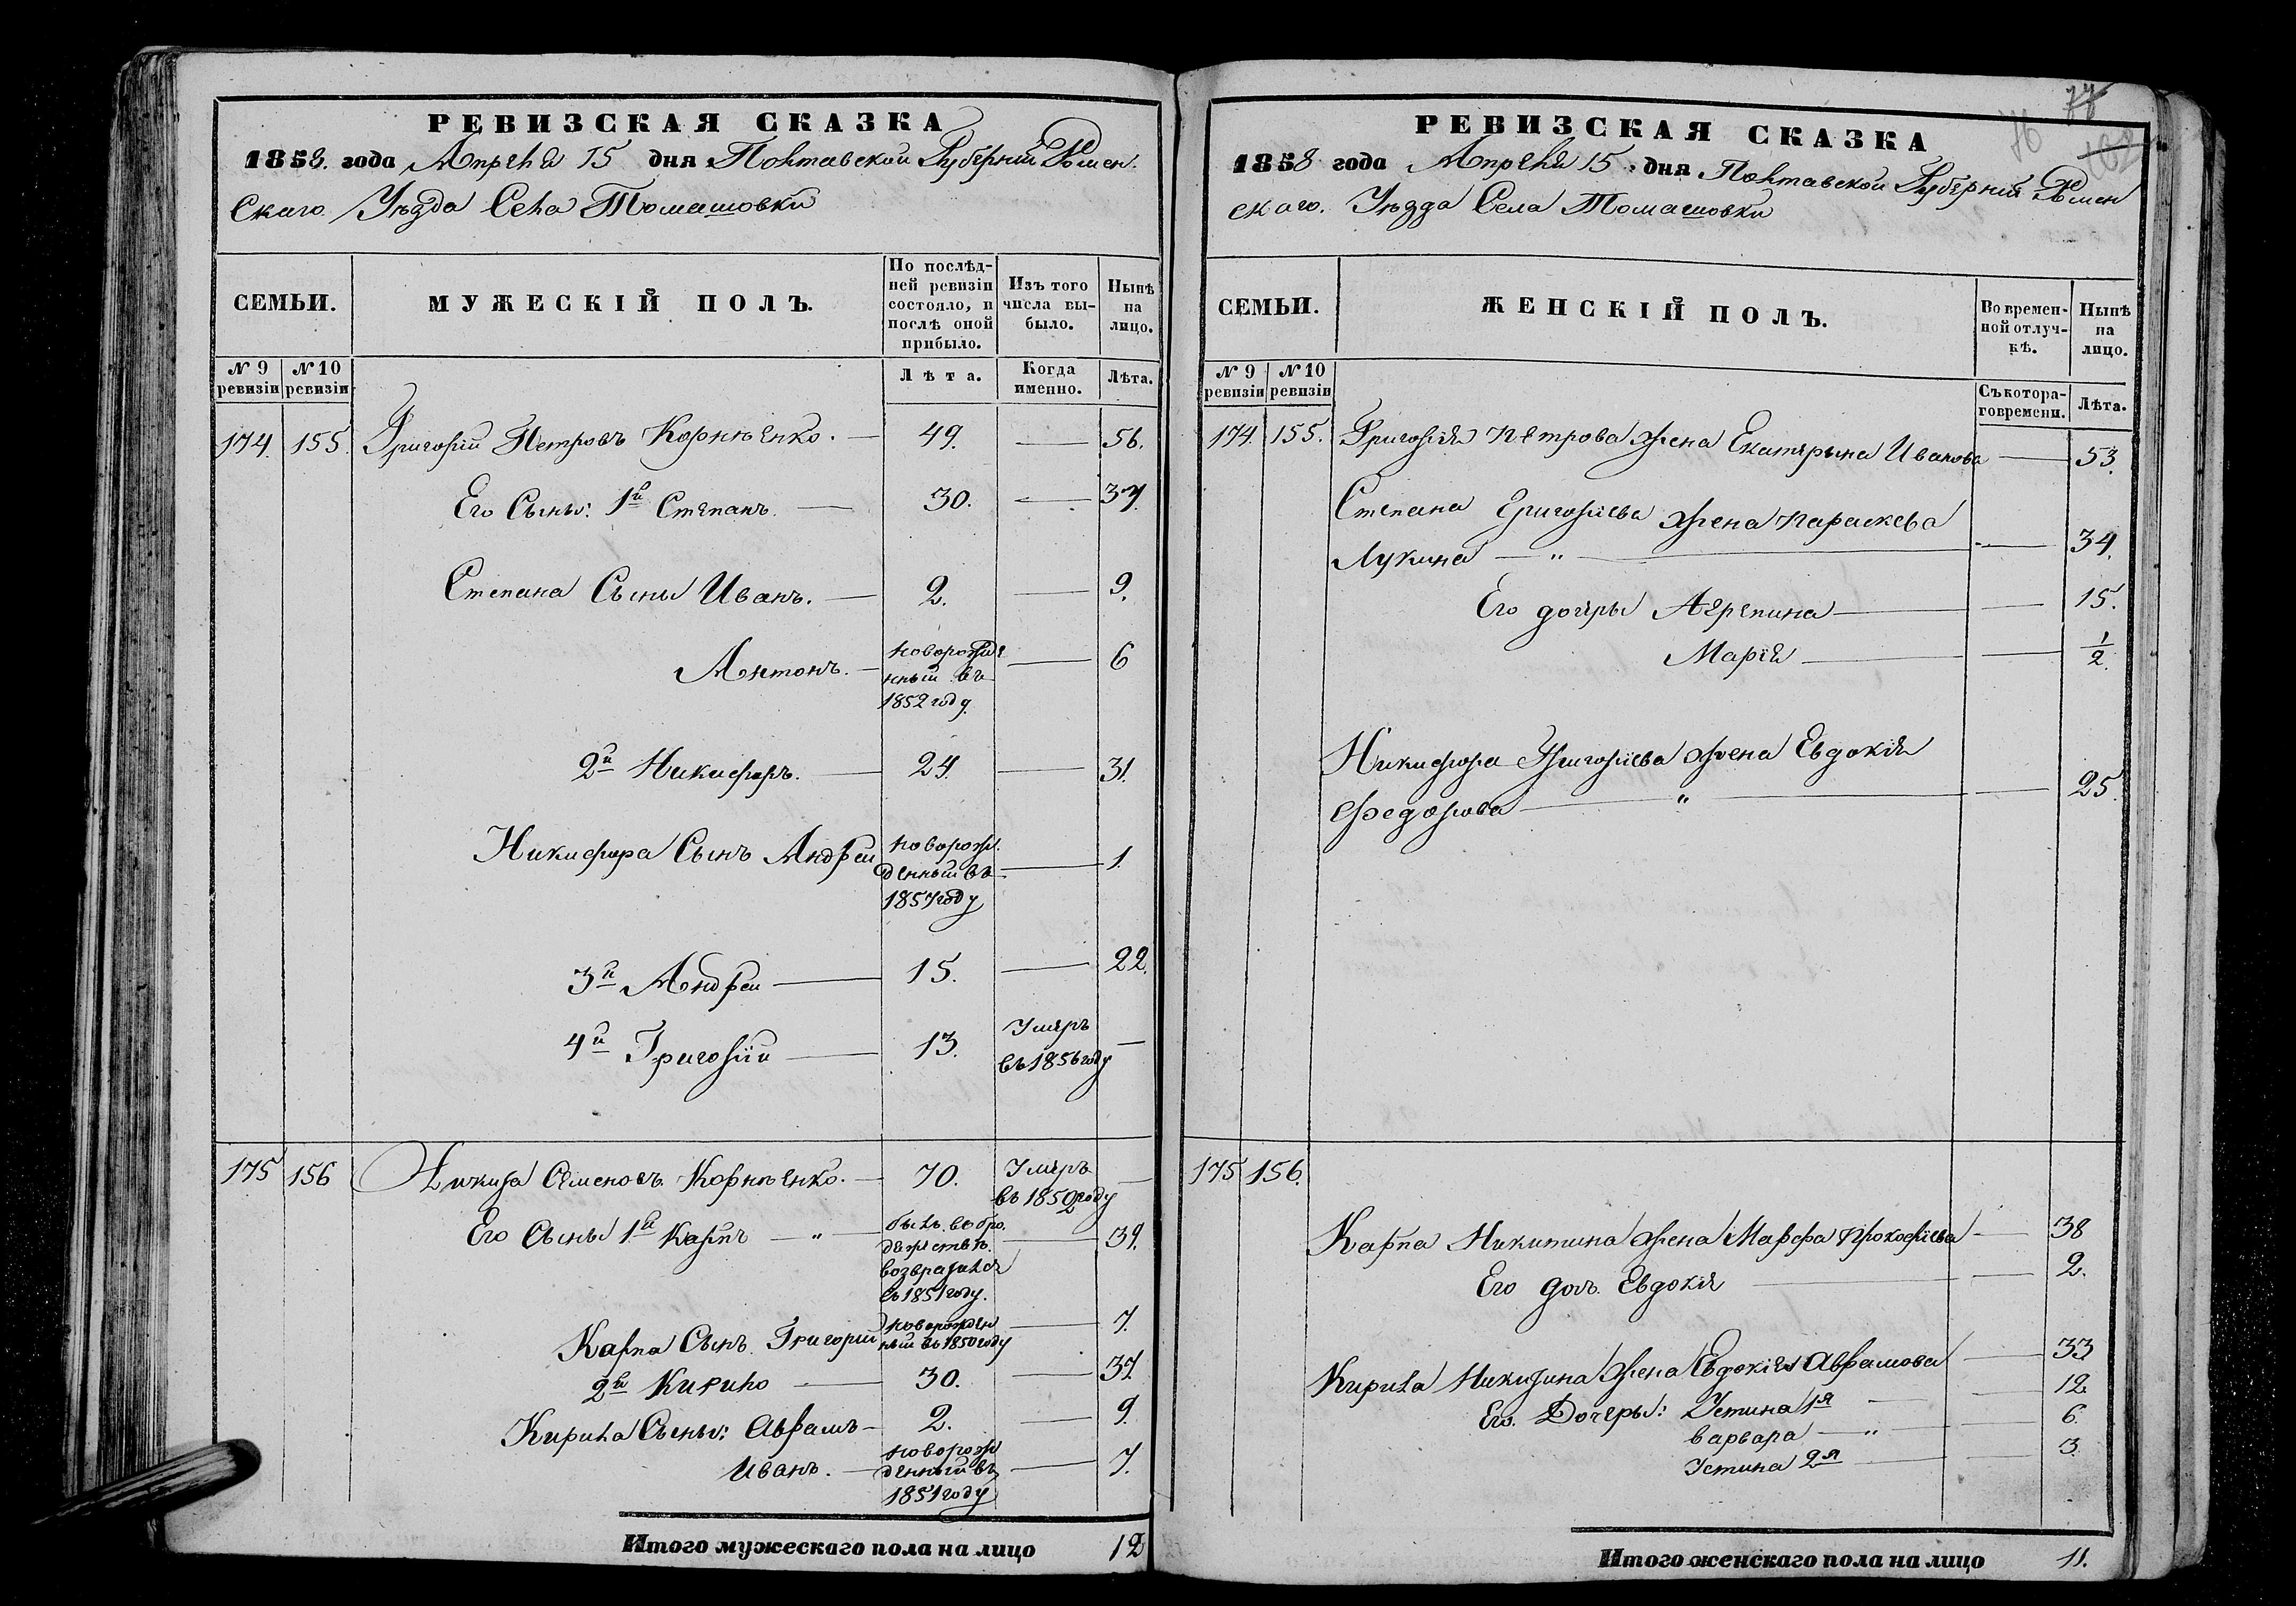 РЕВИЗСКАЯ СКАЗКА
1858. года Апреля 15 дня Полтавской Губерніи Ромен.
скаго Уезда Села Томашовки
СЕМЬИ.
МУЖЕСКІЙ ПОЛЪ.
По послѣд-
ней ревизіи
состояло, и
послѣ оной
прибыло.
Изъ того
числа вы-
было.
Нынѣ
на
лицо.
№ 9
ревизіи
№ 10
ревизіи
Лѣта.
Когда
именно.
Лѣта.
174. 155. Григорій Петровъ Корнѣенко. — 49. — 56.
Его Сыны: 1й Степанъ. — 30. — 37
Степана Сыны Иванъ. — 2. — 9.
Антонъ. — новорожде
нный въ
1852 году — 6
2й Никифоръ. — 24. — 31.
Никифора Сынъ Андрей
новорож.
денный въ
1857 году — 1.
3й Андрей — 15. — 22.
4й Григорій — 13. Умеръ
въ 1856 году —
175 156 Никита Семеновъ Корнѣенко. — 70. Умеръ
въ 1852 году —
Его Сыны 1й Карпъ — " — былъ въ бро.
дяжествѣ.
возвратился
въ 1851 году. — 39.
Карпа Сынъ Григорій новорожден
ный въ 1850 году — 7.
2й Кирило — 30. — 37.
Кирила Сыны: Аврамъ — 2. — 9.
Иванъ. — новорож
денный въ
1851 году — 7.
Итого мужескаго пола на лицо 12
76 77
РЕВИЗСКАЯ СКАЗКА
1858 года Апреля 15. дня Полтавской Губерніи Ромен
скаго. Уезда Села Томашовки
СЕМЬИ.
ЖЕНСКІЙ ПОЛЪ.
Во времен-
ной отлуч-
кѣ.
Нынѣ
на
лицо.
№ 9
ревизіи
№ 10
ревизіи
Съ котора-
го времени.
Лѣта.
174. 155. Григорія Петрова жена Екатерына Иванова — 53.
Степана Григоріева жена Параскева
Лукина — " — — 34.
Его дочеры Агрепина — — 15.
Марія — — 1/2.
Никифора Григоріева жена Евдокія
Федорова — " — — 25.
175 156.
Карпа Никитина жена Марфа Прокофіева — 38
Его доч. Евдокія — — 2.
Кирила Никитина жена Евдокія Аврамова — 33
Его. Дочеры: Устина 1я — — 12.
Варвара — " — — 6.
Устина 2я — — 3.
Итого женскаго пола на лицо 11.